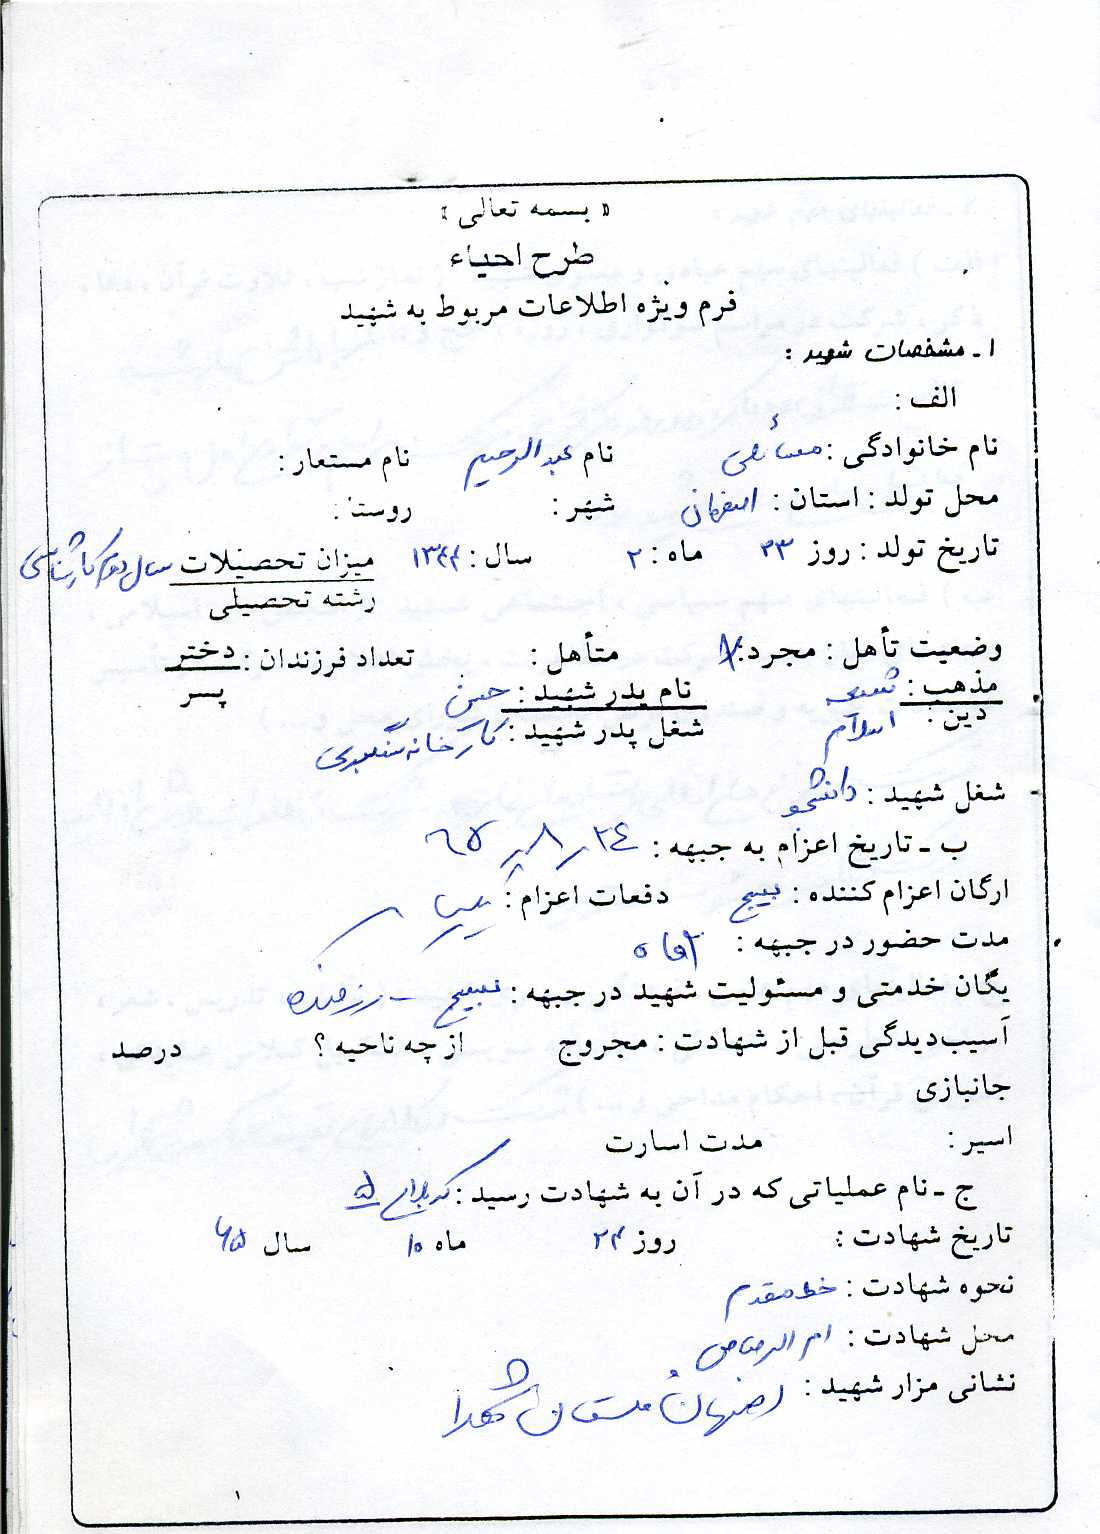 « بسمه تعالی »
طرح احیاء
فرم ویژه اطلاعات مربوط به شهید
۱ ـ مشخصات شهید :
الف :
نام خانوادگی : نام عبدالرحیم نام مستعار :
محل تولد : استان : اصفهان شهر : روستا :
تاریخ تولد : روز ۲۳ ماه : ۲ سال : ۱۳۴۴ میزان تحصیلات سال دوم کارشناسی
رشته تحصیلی
وضعیت تأهل : مجرد : متأهل : تعداد فرزندان : دختر
پسر
مذهب : شیعه نام پدر شهید : حسن
دین : اسلام شغل پدر شهید : کارخانه سنگبری
شغل شهید : دانشجو
ب ـ تاریخ اعزام به جبهه : ۲۴ ر ۸ ر ۶۵
ارگان اعزام کننده : بسیج دفعات اعزام : یکبار
مدت حضور در جبهه : ۲ ماه
یگان خدمتی و مسئولیت شهید در جبهه : بسیج - رزمنده
آسیب‌دیدگی قبل از شهادت : مجروج از چه ناحیه ؟ درصد
جانبازی
اسیر : مدت اسارت
ج ـ نام عملیاتی که در آن به شهادت رسید : کربلای ۵
تاریخ شهادت : روز ۲۴ ماه ۱۰ سال ۶۵
نحوه شهادت : خط مقدم
محل شهادت : ام الرصاص
نشانی مزار شهید : اصفهان گلستان شهدا
۱